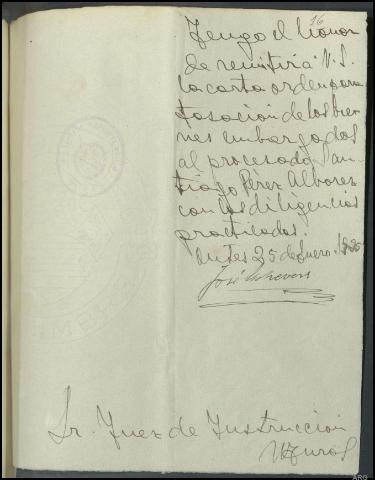 16
Tengo el honor
de remitir á V.S.
la carta orden para
tasación de los bie-
nes embargados
al procesado San-
tiago Pérez Alborez
con las diligencias
practicadas.
25 de Enero
José
Sr. Juez de Instruccion